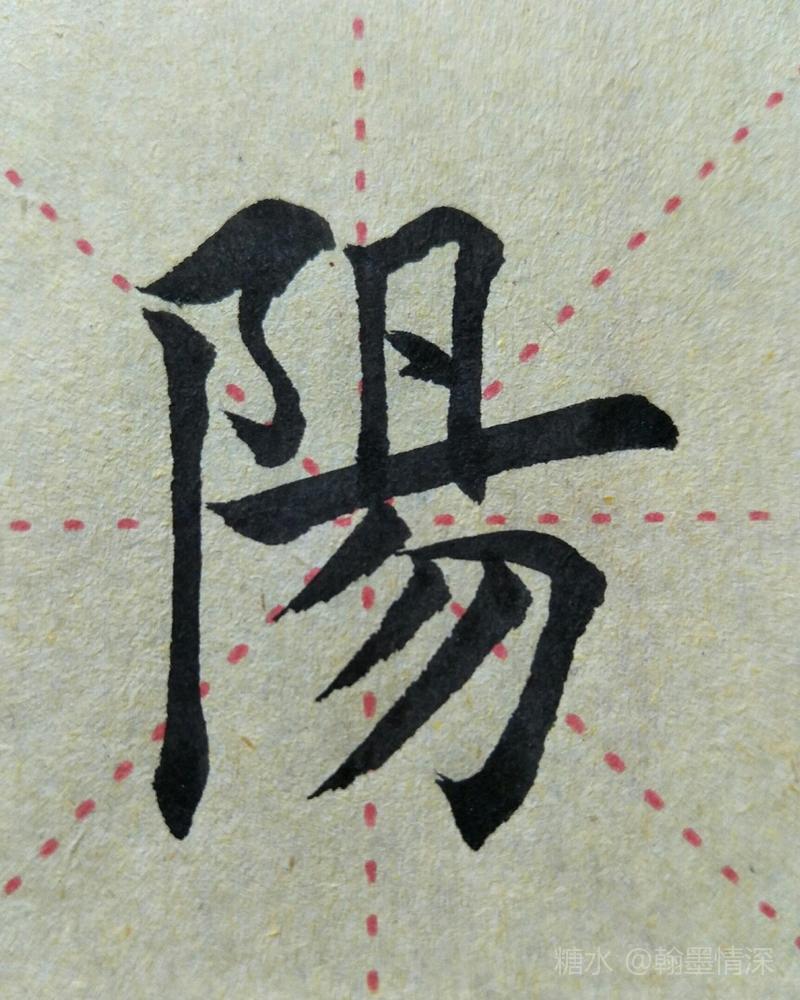 陽
糖水 @翰墨情深